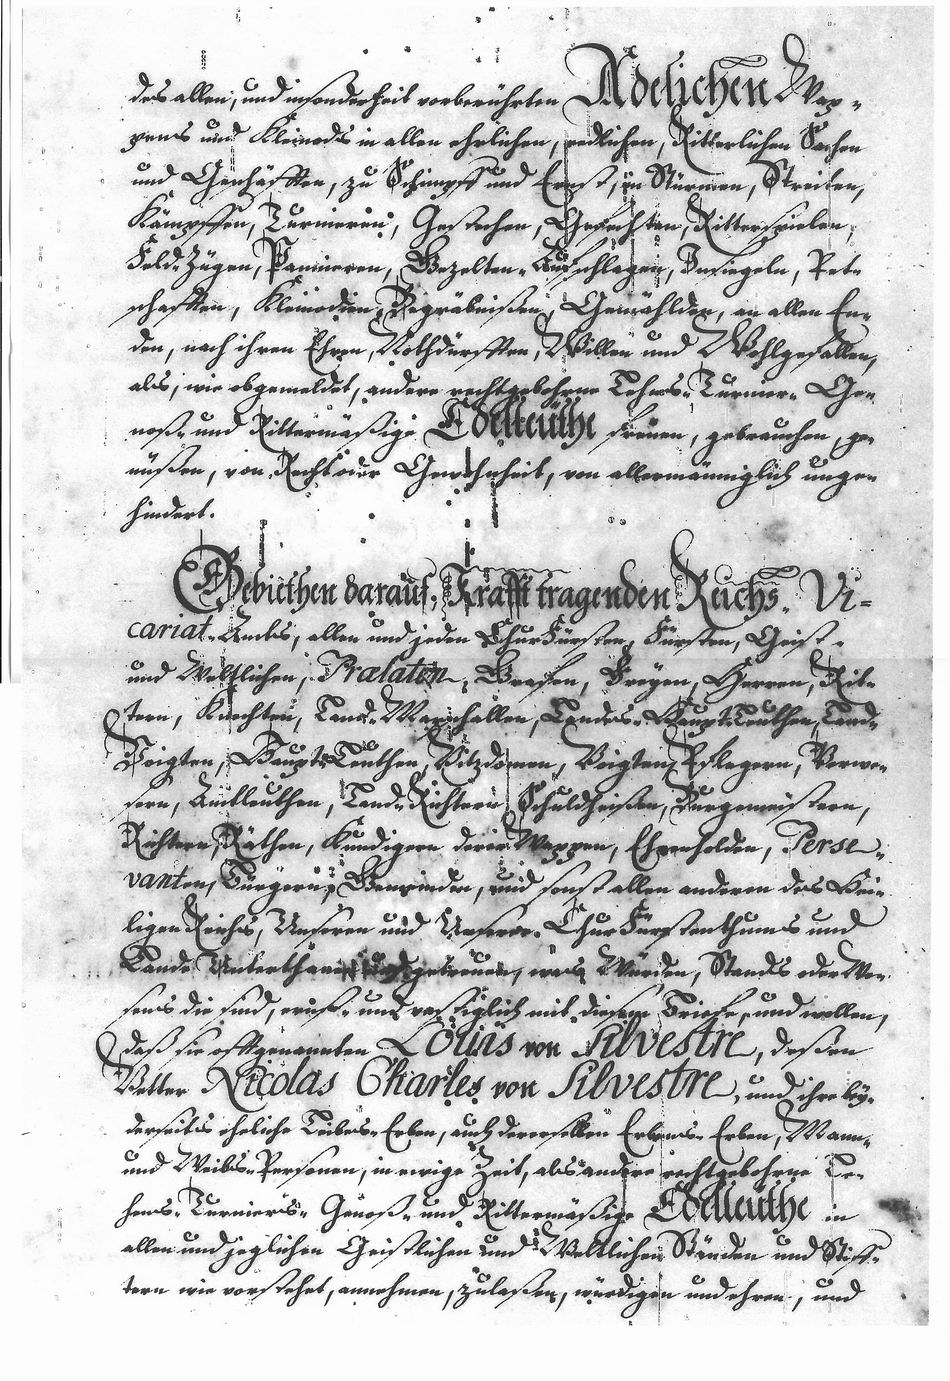 des allen, und insonderheit vorberührten Adelichen Wap-
pens und Kleinods in allen ehrlichen, redlichen, Ritterlichen Sachen
und Geschäfften, zu Schimpff und Ernst, in Stürmen, Streiten,
Kämpffen, Turnieren, Gestechen, Gefechten, Ritterspielen,
Feld-Zügen, Pannieren, Gezelten-Aufschlagen, Insiegeln, Pet-
schafften, Kleinodien, Begräbnißen, Gemählden, an allen En-
den, nach ihren Ehren, Nothdurfften, Willen und Wohlgefallen,
als, wie obgemeldet, andere rechtgebohrne Lehns-Turnier-Ge-
noß- und Rittermäßige Edelleüthe freüen, gebrauchen, ge-
nüßen, von Recht oder Gewohnheit, von allermänniglich unge-
hindert.
Gebiethen darauf, Krafft tragenden Reichs-Vi-
cariat-Ambts, allen und jeden ChurFürsten, Fürsten, Geist-
und Weltlichen, Prælaten, Grafen, Freyen, Herren, Rit-
tern, Knechten, Land-Marschallen, Landes-HauptLeuthen, Land-
Voigten, HauptLeuthen, Vitzdomen, Voigten, Pflegern, Verwe-
sern, Amtleuthen, Land-Richtern, Schuldheißen, Burgemeistern,
Richtern, Räthen, Kundigern derer Wappen, Ehrenholden, Perse-
vanten, Bürgern, Gemeinden, und sonst allen anderen des Hei-
ligen Reichs, Unseren und Unserer ChurFürstenthums und
Lande Unterthanen und getreuen, was Würden, Stands oder We-
sens die sind, ernst- und vestiglich mit diesem Briefe, und wollen,
daß sie offtgenannten Loüis von Silvestre, deßen
Vetter Nicolas Charles von Silvestre, und ihre bey-
derseits eheliche Leibes-Erben, auch dererselben Erbens-Erben, Mann-
und Weibs-Personen, in ewige Zeit, als andere rechtgebohrne Le-
hens-Turniers-Genoß- und Rittermäßige Edelleüthe in
allen und jeglichen Geistlichen und Weltlichen Ständen und Stiff-
tern wie vorstehet, annehmen, zulaßen, würdigen und ehren, und